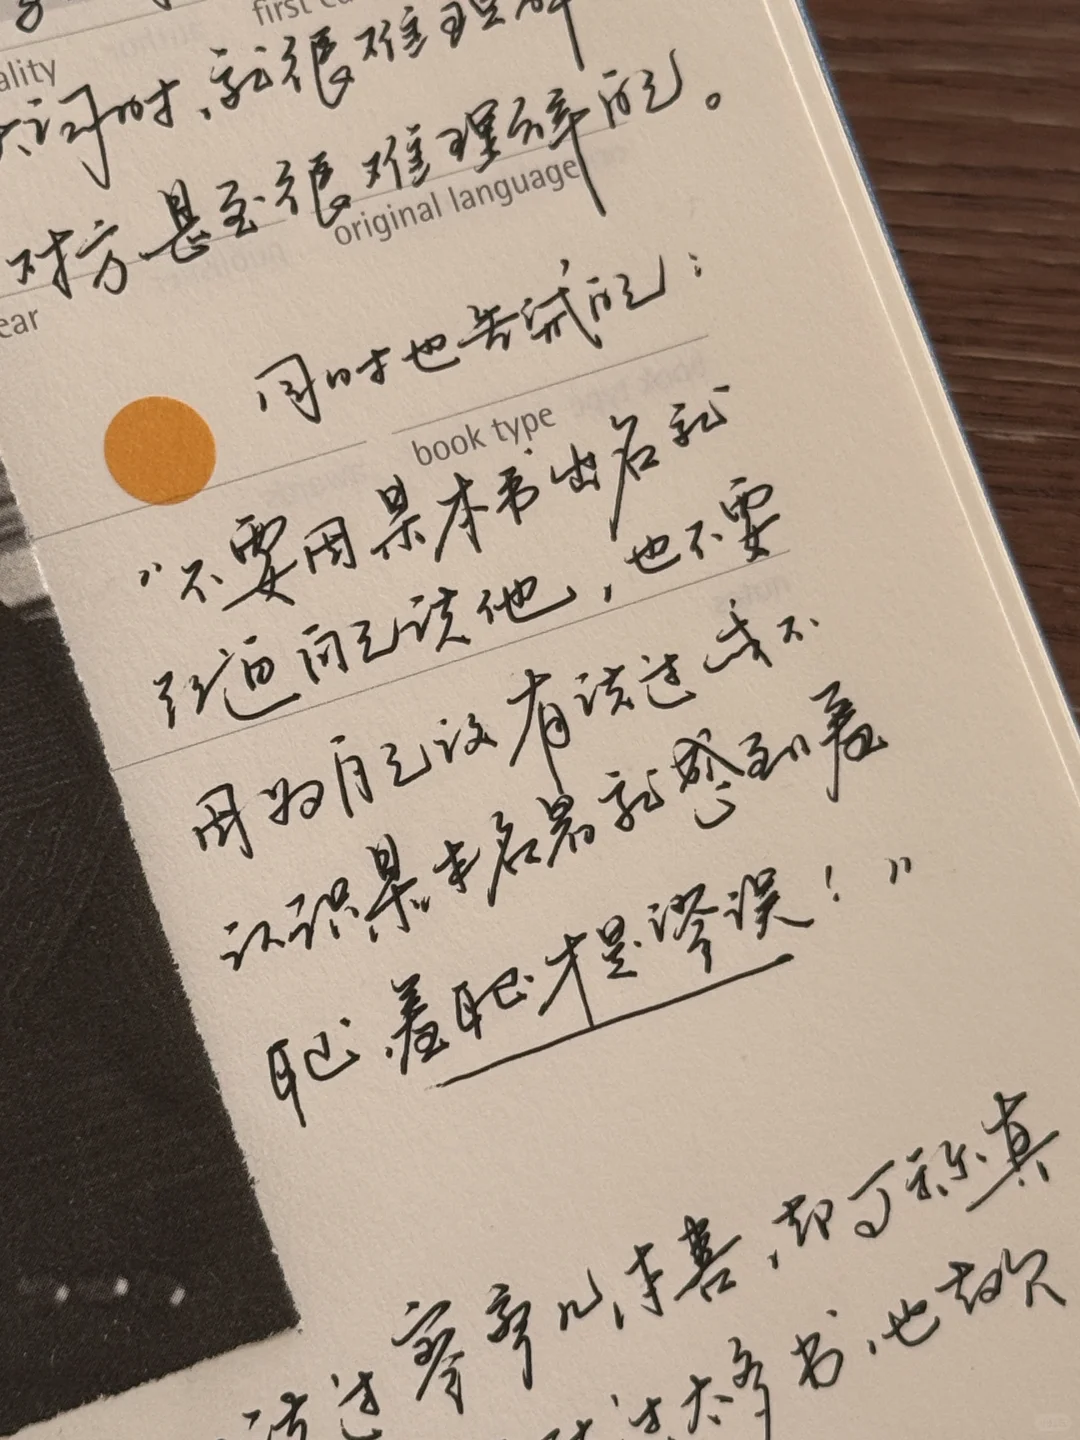 first
大词时，就很难理解
ality
对方甚至很难理解的。
original language
ear
同时也告诫的：
book type
“不要因某本书出名就
强迫自己读他，也不要
因为自己没有读过或不
认识某本名著就感到羞
耻，羞耻才是谬误！”
读过寥寥几本善，却可称真
过太多书，也